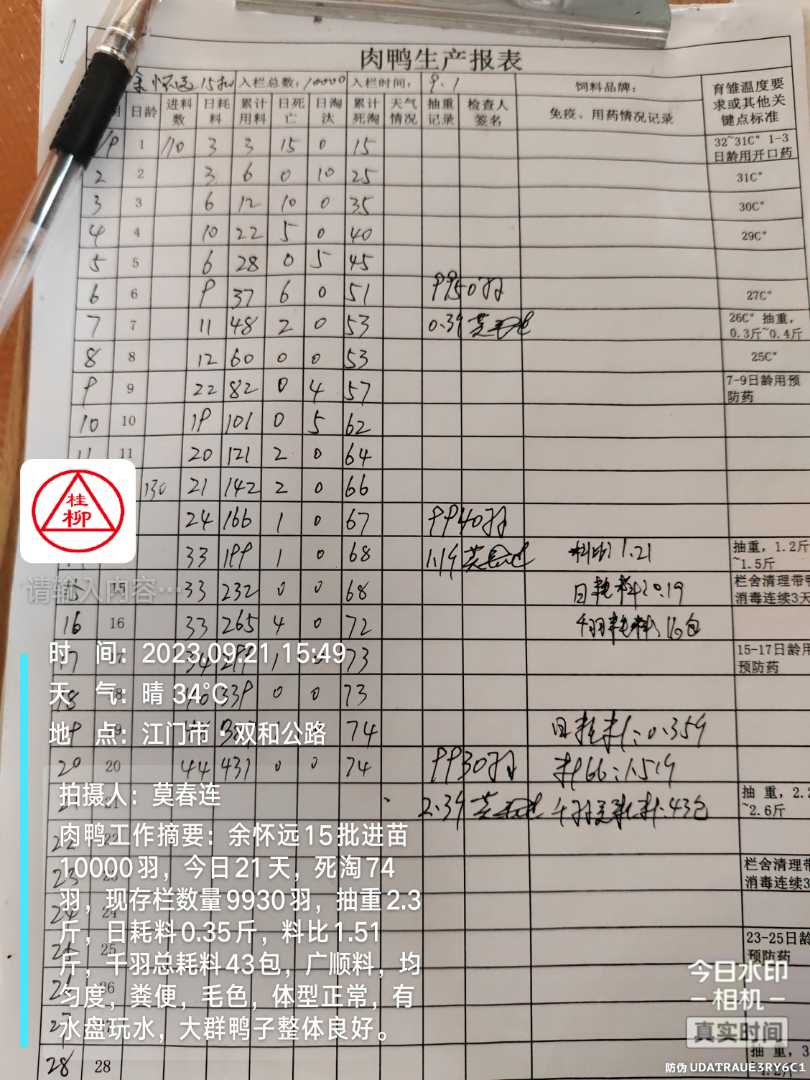 肉鸭生产报表
余怀远15批 入栏总数：10000 入栏时间：9.1 饲料品牌：
日龄 进料数 日耗料 累计用料 日死亡 日淘汰 累计死淘 天气情况 抽重记录 检查人签名 免疫、用药情况记录 育雏温度要求或其他关键点标准
1/9 1 110 3 3 15 0 15 32~31C° 1-3日龄用开口药
2 2 3 6 0 10 25 31C°
3 3 6 12 10 0 35 30C°
4 4 10 22 5 0 40 29C°
5 5 6 28 0 5 45
6 6 9 37 6 0 51 9950羽 27C°
7 7 11 48 2 0 53 0.39 26C° 抽重，0.3斤~0.4斤
8 8 12 60 0 0 53 25C°
9 9 22 82 0 4 57 7-9日龄用预防药
10 10 19 101 0 5 62
11 11 20 121 2 0 64
130 21 142 2 0 66
24 166 1 0 67 9940羽
33 199 1 0 68 1.19 料比1.21 抽重，1.2斤~1.5斤
15 15 33 232 0 0 68 日耗料0.19 栏舍清理带
消毒连续3天
16 16 33 265 4 0 72 千羽耗料16包
1 73 15-17日龄用预防药
18 339 0 0 73
19 74 日耗料：0.359
20 20 44 431 0 0 74 9930羽 料比：1.519
2.39 43包 抽重，2.2
~2.6斤
22
23 栏舍清理带
消毒连续3
24
25 23-25日龄
预防药
26
27
28 28 抽重，3.
桂柳
请输入内容…
时 间：2023.09.21 15:49
天 气：晴 34℃
地 点：江门市·双和公路
拍摄人：莫春连
肉鸭工作摘要：余怀远15批进苗
10000羽，今日21天，死淘74
羽，现存栏数量9930羽，抽重2.3
斤，日耗料0.35斤，料比1.51
斤，千羽总耗料43包，广顺料，均
匀度，粪便，毛色，体型正常，有
水盘玩水，大群鸭子整体良好。
今日水印
相机
真实时间
防伪 UDATRAUE3RY6C1